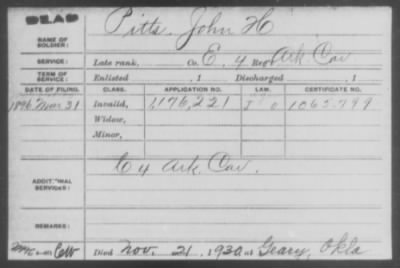 DEAD
NAME OF SOLDIER: Pitts, John H
SERVICE: Late rank, Co. E, 4 Reg't Ark Cav
TERM OF SERVICE: Enlisted , 1 Discharged , 1
DATE OF FILING. CLASS. APPLICATION NO. LAW. CERTIFICATE NO.
1896 Mar 31 Invalid, 1,176,221 1065799
Widow,
Minor,
C 4 Ark. Cav.
ADDITIONAL SERVICES:
REMARKS:
Died Nov. 21, 1930, at Geary, Okla